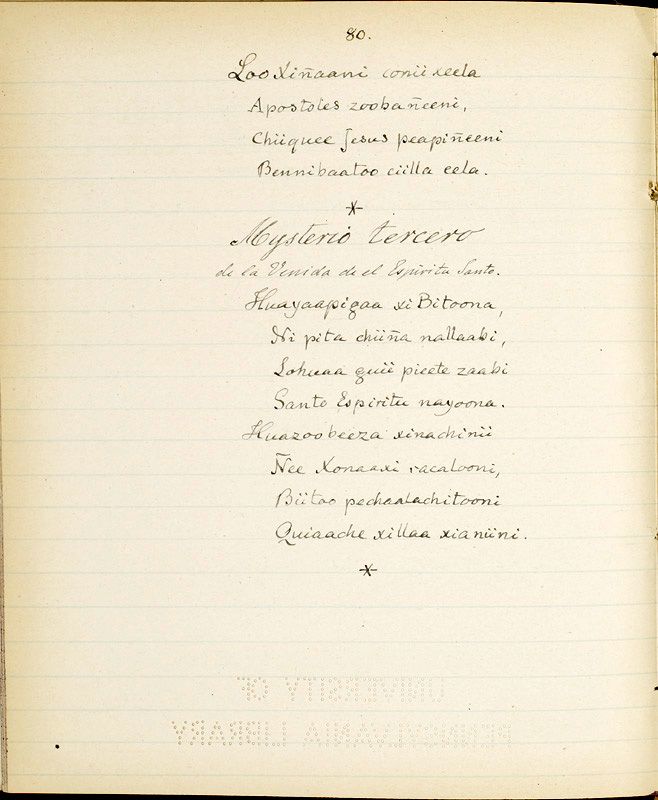 80.
Loo Xiñaani conii xeela
Apostoles zoobañeeni,
Chiiquee Jesus peapiñeeni
Bennibaatoo ciilla eela.
Mysterio tercero
de la Venida de el Espiritu Santo.
Huayaapigaa xi Bitoona,
Ni pita chiiña nallaabi,
Lohuaa guii pieete zaabi
Santo Espiritu nayoona.
Huazoobeeza xinachinii
Ñee Xonaaxi racalooni,
Biitoo pechaalachitooni
Quiaache xillaa xianiini.
UNIVERSITY OF
PENNSYLVANIA LIBRARY